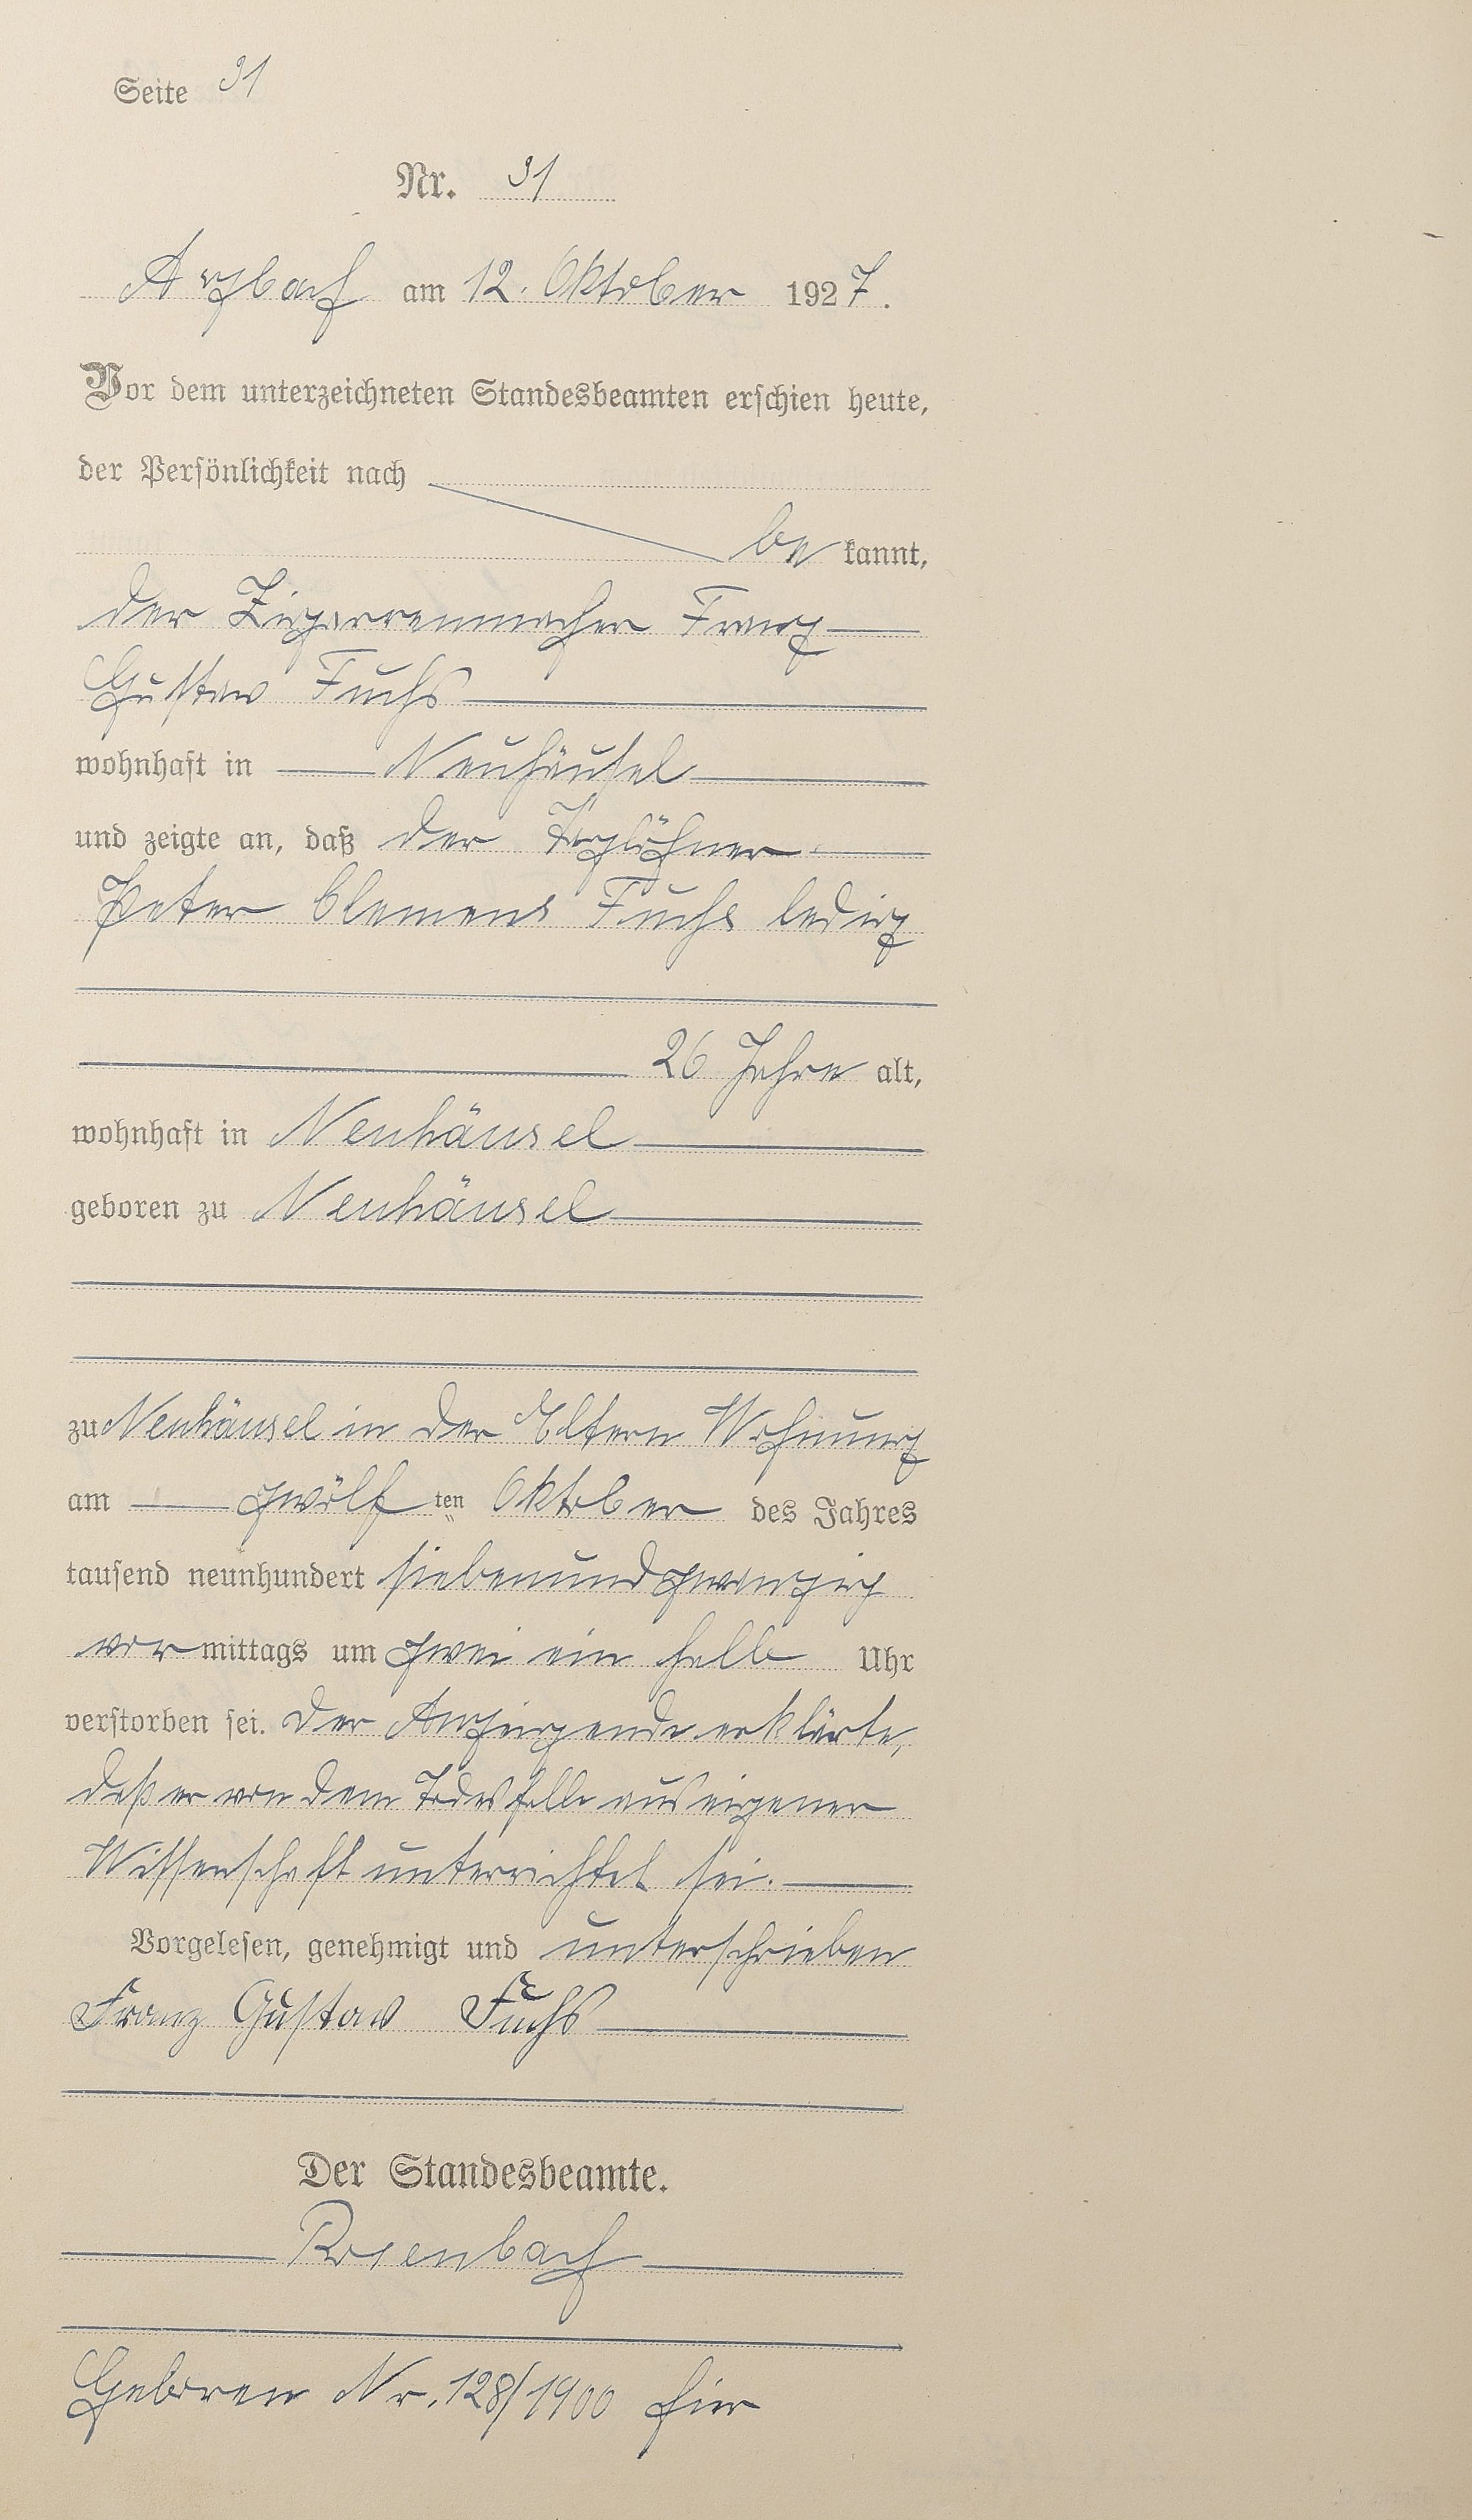 Seite 31
Nr. 31
Arzbach am 12. Oktober 1927.
Vor dem unterzeichneten Standesbeamten erschien heute,
der Persönlichkeit nach
be kannt,
der Zigarrenmacher Franz
Gustav Fuchs
wohnhaft in Neuhäusel
und zeigte an, daß der Taglöhner
Peter Clemens Fuchs ledig
26 Jahre alt,
wohnhaft in Neuhäusel
geboren zu Neuhäusel
zu Neuhäusel in der Eltern Wohnung
am zwölf ten Oktober des Jahres
tausend neunhundert siebenundzwanzig
vor mittags um zwei ein halb Uhr
verstorben sei. Der Anzeigende erklärte,
daß er von dem Todesfalle aus eigener
Wissenschaft unterrichtet sei.
Vorgelesen, genehmigt und unterschrieben
Franz Gustav Fuchs
Der Standesbeamte.
Rosenbach
Geboren Nr. 128/1900 hier